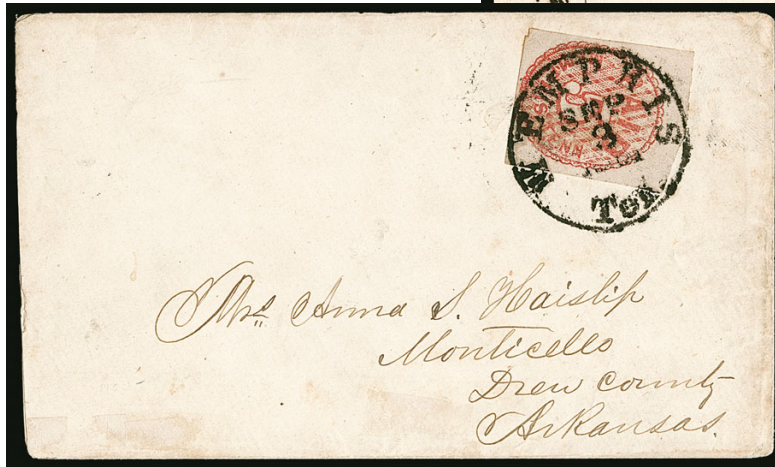 MEMPHIS
SEP
3
Ten.
PAID
Mrs. Anna S. Haislip
Monticello
Drew County
Arkansas.